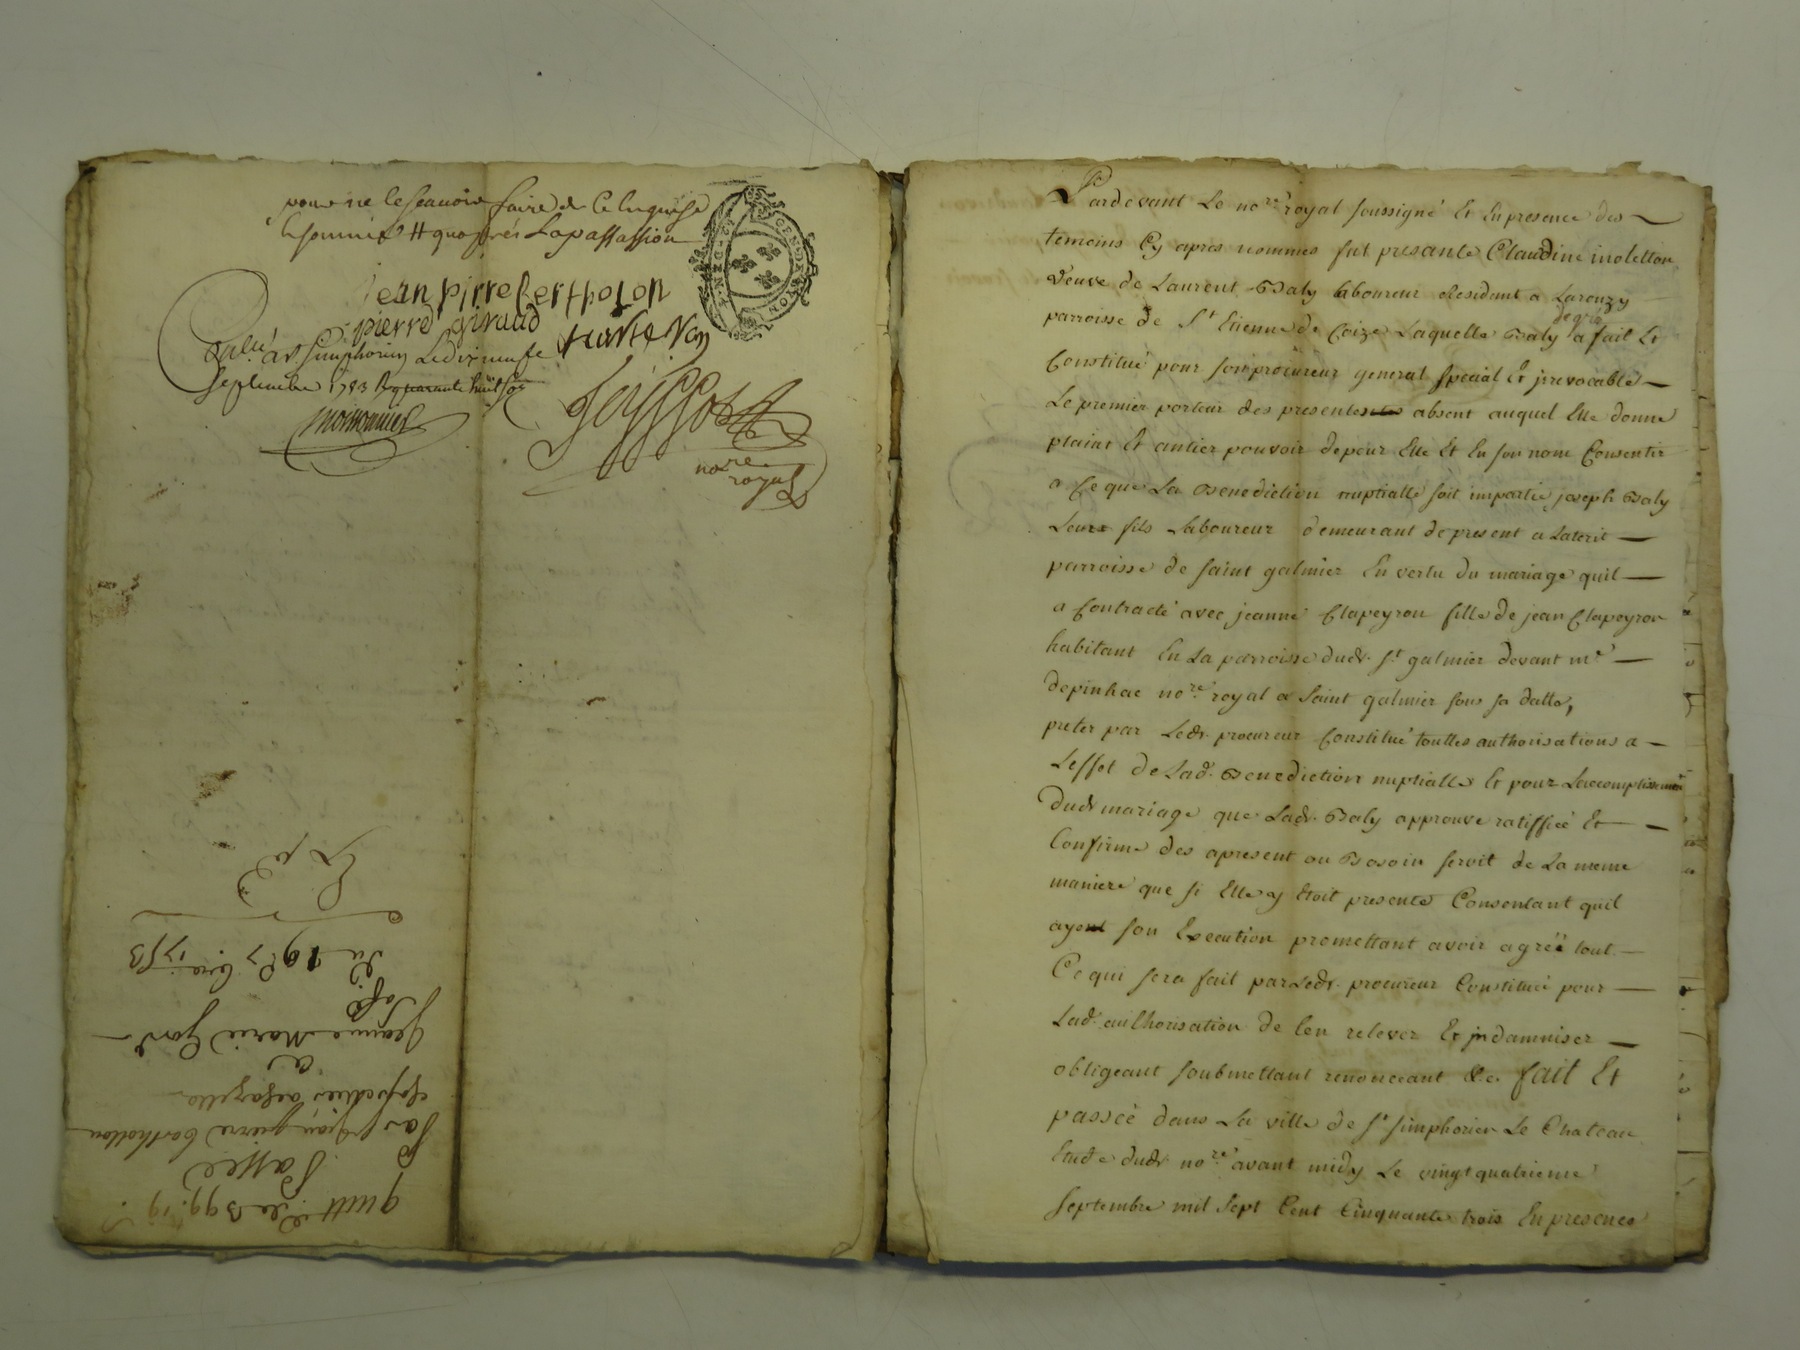 pour ne le scavoir faire de ce enquis
et sommés # quoy après la passassion
jean pirre bertholon
pierre giraud
Contlé a St Simphorien le dix neufe
Septembre 1753 R quarante huit sol
nore
royal
GENERAL
quitt ce de 399. 19.
Passée
Par sr jean pierre bertholon
a
Jeanne Marie
du 19e 7bre 1753
Exp d
Pardevant Le nore royal soussigné Et En presence des
temoins Cy apres nommes fut presante Claudine
veuve de Laurent Baly Laboureur Residant a Larouzy
parroisse de St Etienne de Coize Laquelle Baly de gré a fait Et
Constitué pour son procureur general special Et jrrevocable
Le premier porteur des presentes absent auquel Elle donne
plaint Et antier pouvoir de pour Elle Et En son nom Consentir
a Ce que La Benediction nuptialle soit impartie joseph Baly
Leur fils Laboureur demeurant de present a
parroisse de saint galmier En vertu du mariage quil
a Contracté avec jeanne Clapeyron fille de jean Clapeyron
habitant En La parroisse dudt. St galmier devant me
depinhac nore royal a saint galmier sous sa datte,
preter par Ledt. procureur Constitué touttes authorisations a
Leffet de Lad. Benediction nuptialle Et pour Laccomplissement
Dudt mariage que Ladt. Baly approuve ratiffiée Et
Confirme des apresent ou Besoin seroit de La meme
maniere que si Elle y Etoit presente Consentant quil
ayent son Execution promettant avoir agréé tout
Ce qui sera fait par Ledt. procureur Constitué pour
Lad. authorisation de Len relever Et jndamniser
obligeant soubmettant renonceant &c. fait Et
passée dans La ville de St Simphorien Le Chateau
Etude dudt nore avant midy Le vingt quatrieme
Septembre mil sept Cent Cinquante trois En presence